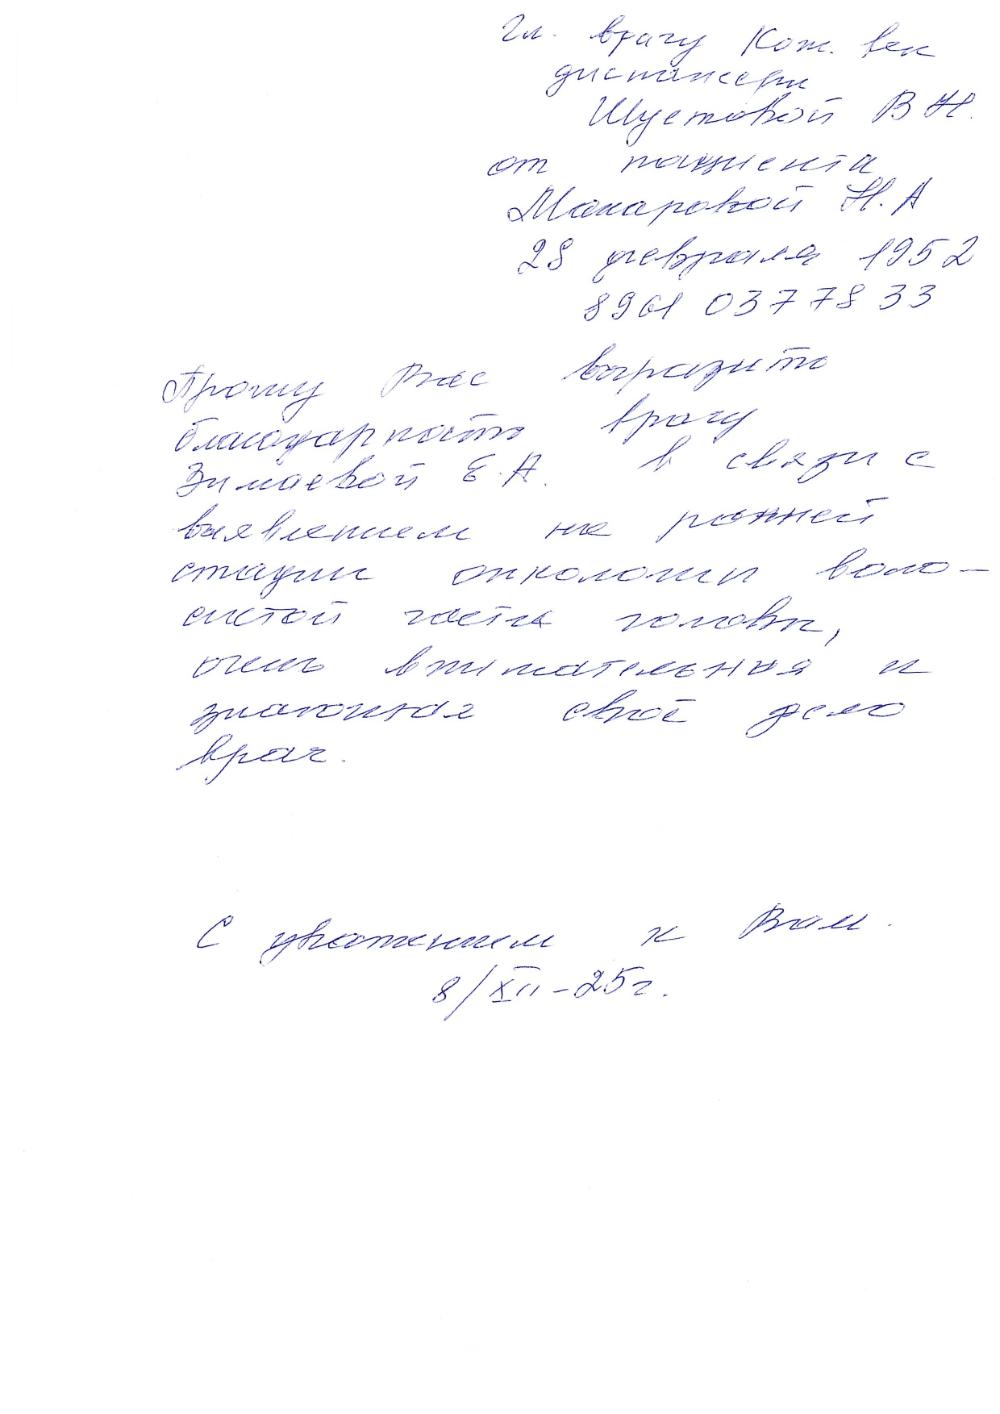 Гл. врачу Кож. вен
диспансера
Шустовой В Н.
от пациента
Макаровой Н. А
28 февраля 1952
8961 0377833
Прошу Вас выразить
благодарность врачу
Зимаевой Е. А. в связи с
выявлением на ранней
стадии онкологии воло-
систой части головы,
очень внимательная и
знающая своё дело
врач.
С уважением к Вам.
8/XII-25г.